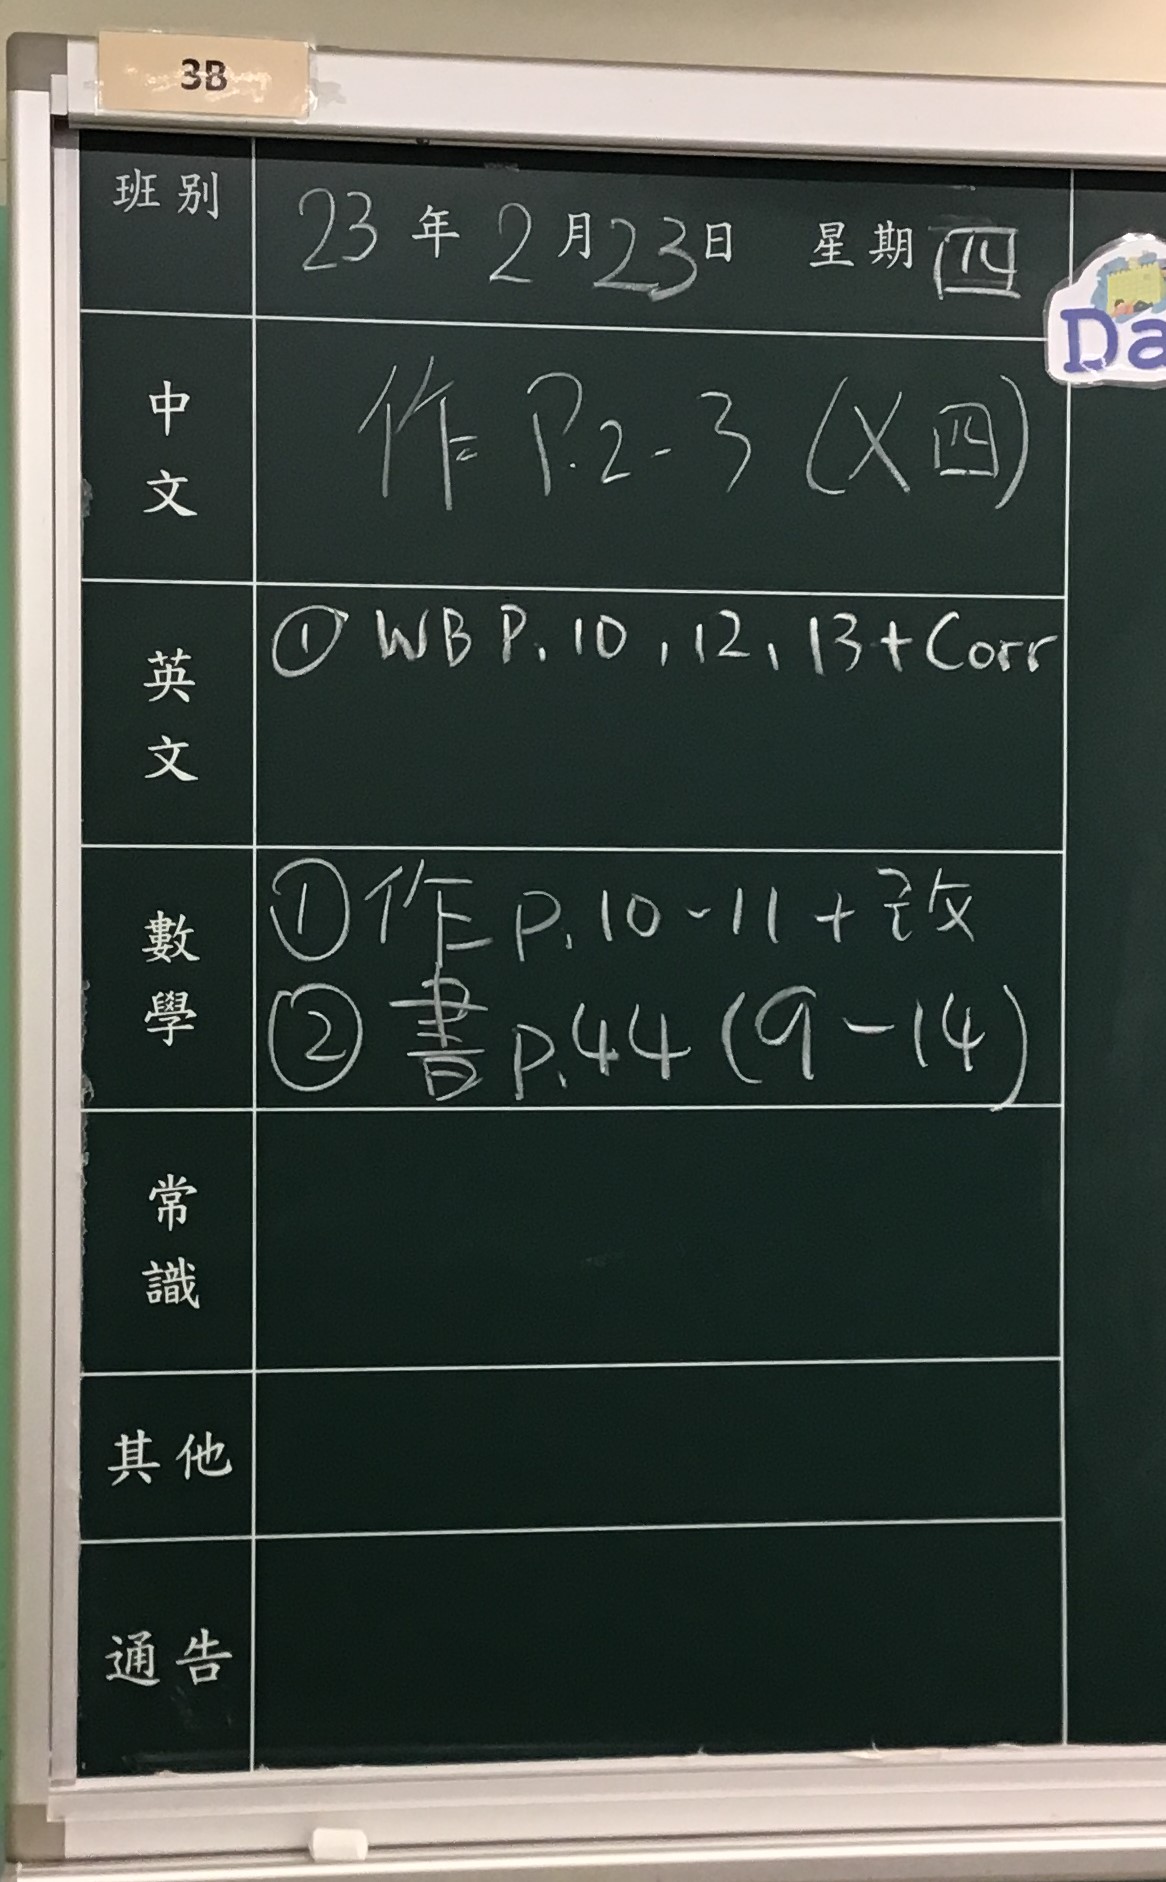 3B
班別 23年2月23日 星期四
Da
中文 作 P.2-3 (X四)
英文 ① WB P.10, 12, 13 + Corr
數學 ①作 p.10-11 + 改
② 書 p.44 (9-14)
常識
其他
通告